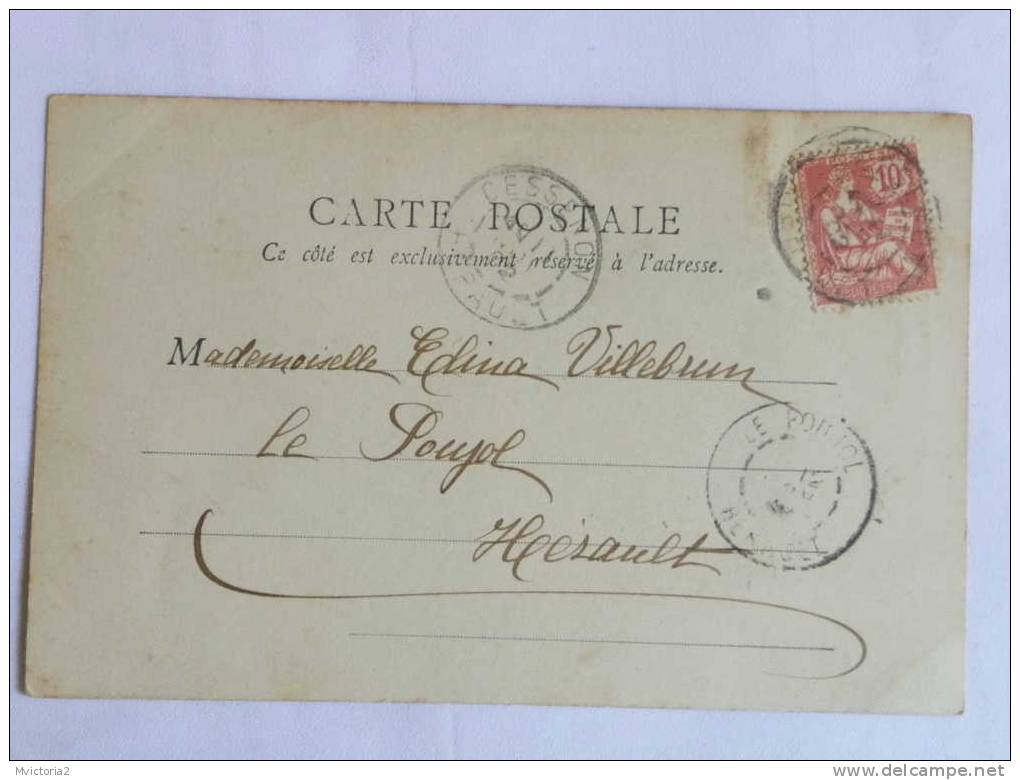 CARTE POSTALE
Ce côté est exclusivement réservé à l'adresse.
CESSENON
HERAULT
10
Mademoiselle Edina Villebrun
le Poujol
Hérault
LE POUJOL
HERAULT
Mvictoria2
delcampe.net